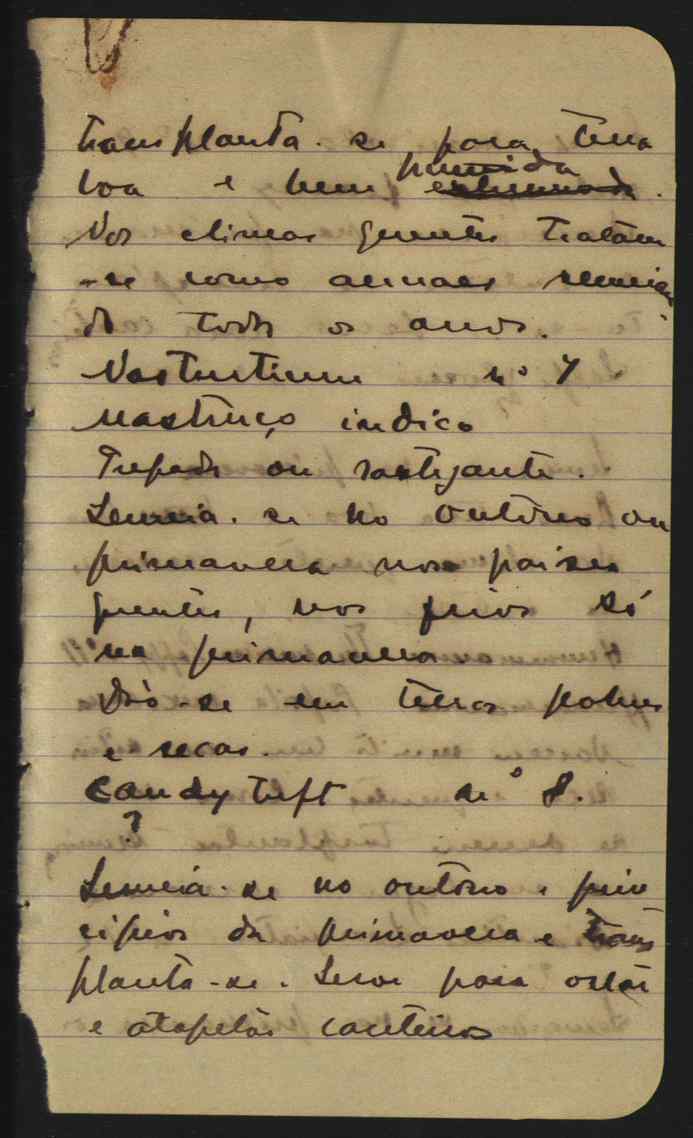 transplanta-se para terra
boa e bem punida
Nos climas quentes tratam
-se como annaes semean
do todos os anos.
Nasturtium nº 7
Mastruço indico
Trepada ou rastejante.
Semeia-se no outôno ou
primavera nos paises
quentes, nos frios só
na primavera.
Dão-se em terras pobres
e secas.
Candytuft nº 8.
?
Semeia-se no outôno e prin
cipios da primavera e trans
planta-se. Serve para orlar
e atapetar canteiros